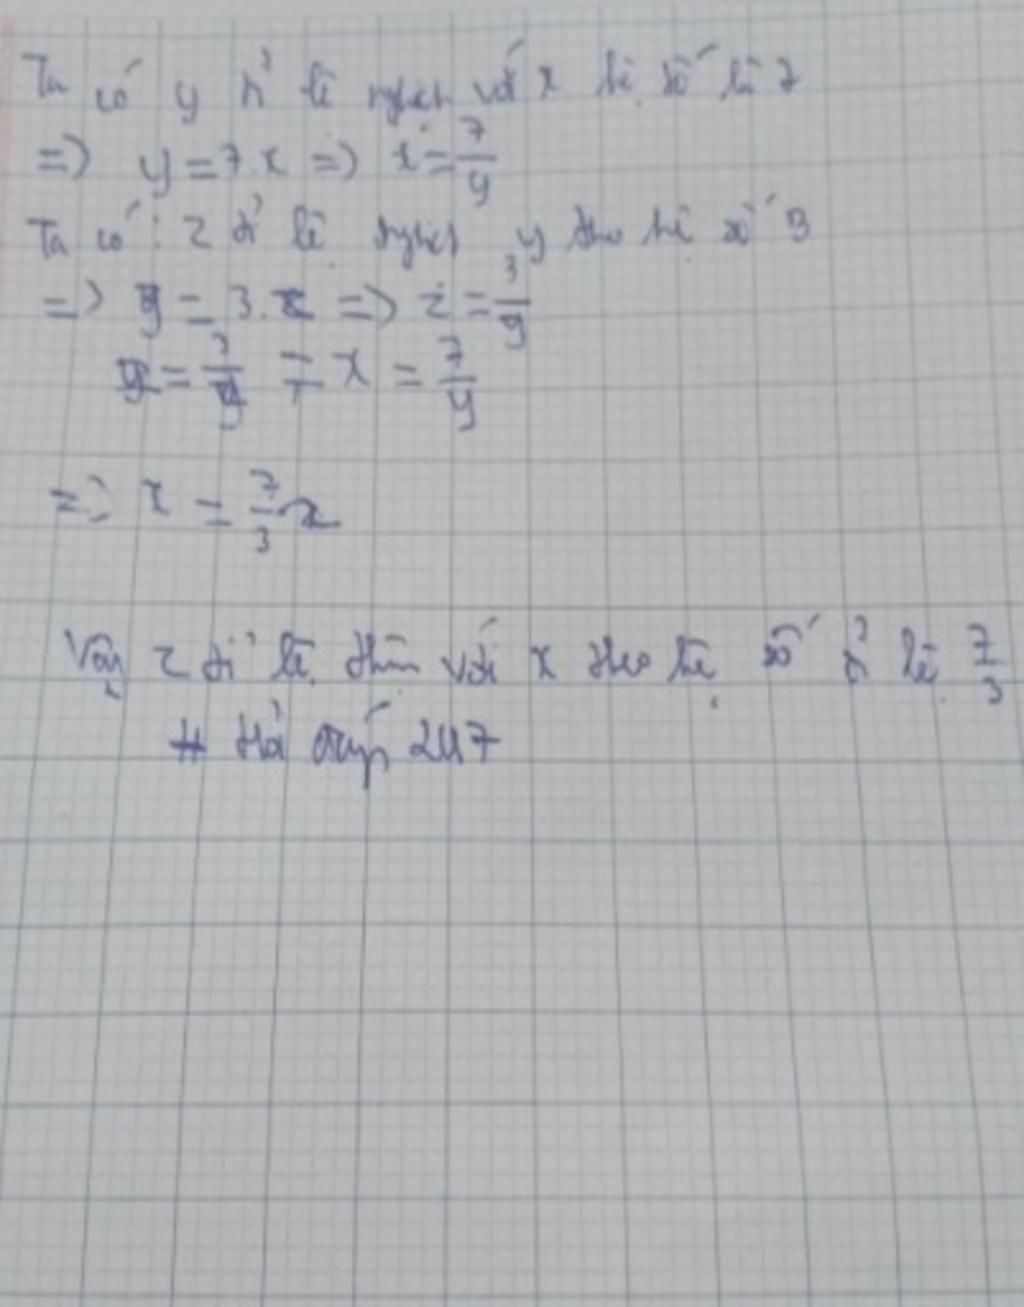 Ta có y tỉ lệ nghịch với x hệ số là 7
=> y = 7.x => x = 7/y
Ta có : z tỉ lệ nghịch y theo hệ số 3
=> y = 3. z => z = 3/y
= 3/y x = 7/y
=> x = 7/3
Vậy z tỉ lệ thuận với x theo hệ số tỉ lệ 7/3
# Hỏi đáp 247